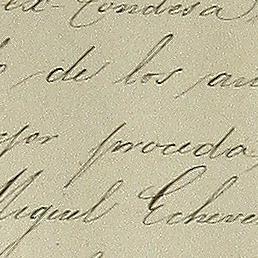 ex-Condesa
de los an
yor proceda
Miguel Echeve